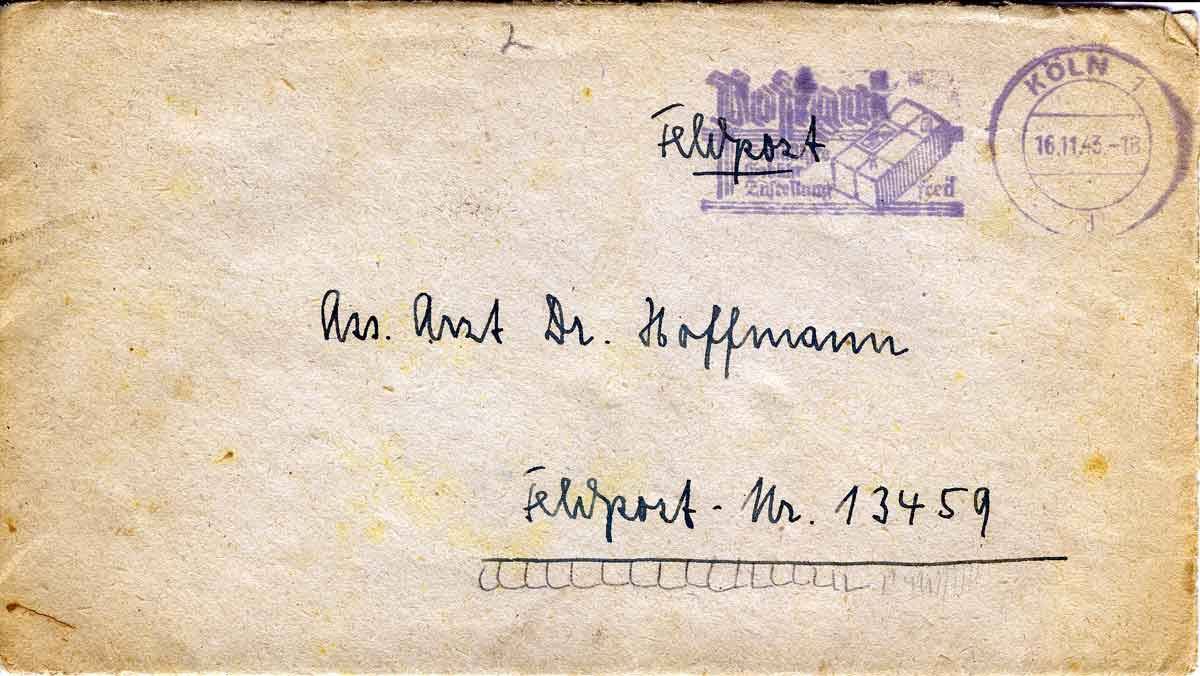 KÖLN 1
16.11.43.-18
Feldpost
Zustellung
Ass. Arzt Dr. Hoffmann
Feldpost-Nr. 13459